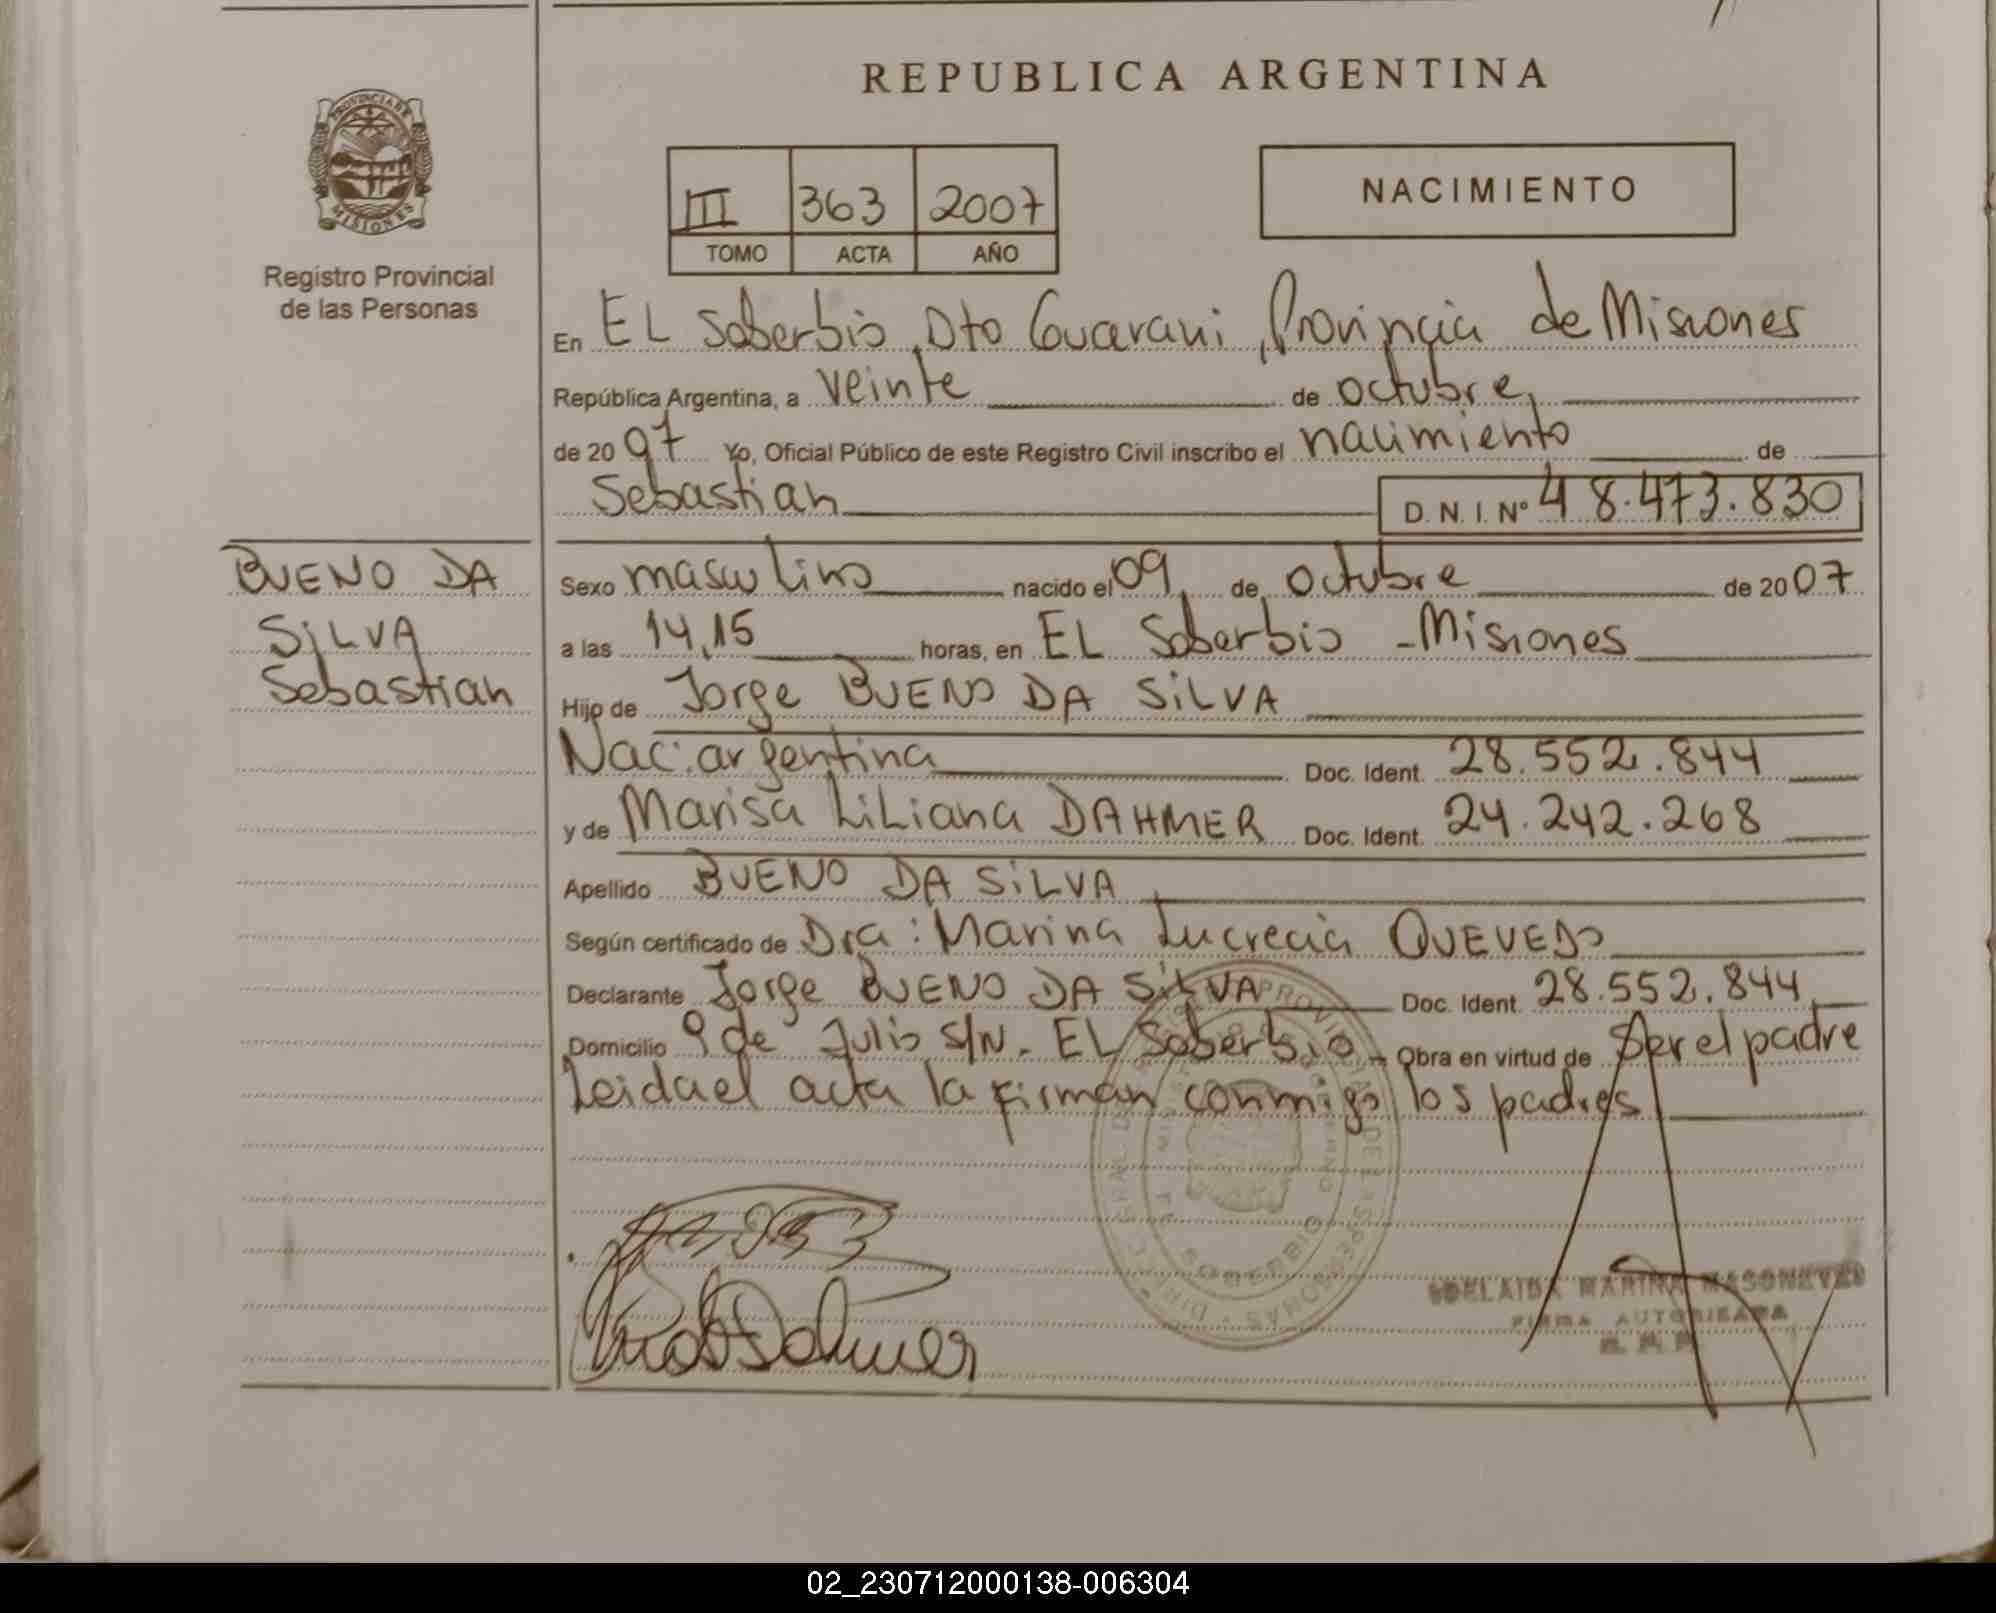 REPUBLICA ARGENTINA
PROVINCIA DE MISIONES
Registro Provincial
de las Personas
III 363 2007
TOMO ACTA AÑO
NACIMIENTO
En EL Soberbio, Dto Guarani, Provincia de Misiones
República Argentina, a veinte de octubre,
de 2007 Yo, Oficial Público de este Registro Civil inscribo el nacimiento de
Sebastian D. N. I. Nº 48.473.830
BUENO DA
SiLVA
Sebastian
Sexo masculino nacido el 09 de octubre de 2007
a las 14,15 horas, en EL Soberbio - Misiones
Hijo de Jorge BUENO DA SiLVA
Nac: argentina Doc. Ident. 28.552.844
y de Marisa LiLiana DAHMER Doc. Ident. 24.242.268
Apellido BUENO DA SiLVA
Según certificado de Dra: Marina Lucrecia QUEVEDO
Declarante Jorge BUENO DA SiLVA Doc. Ident. 28.552.844
Domicilio 9 de Julio S/N. EL Soberbio - Obra en virtud de Ser el padre
Leida el acta la firman conmigo los padres
SOBERBIO
ADELAIDA MARINA
FIRMA AUTORIZADA
02_230712000138-006304